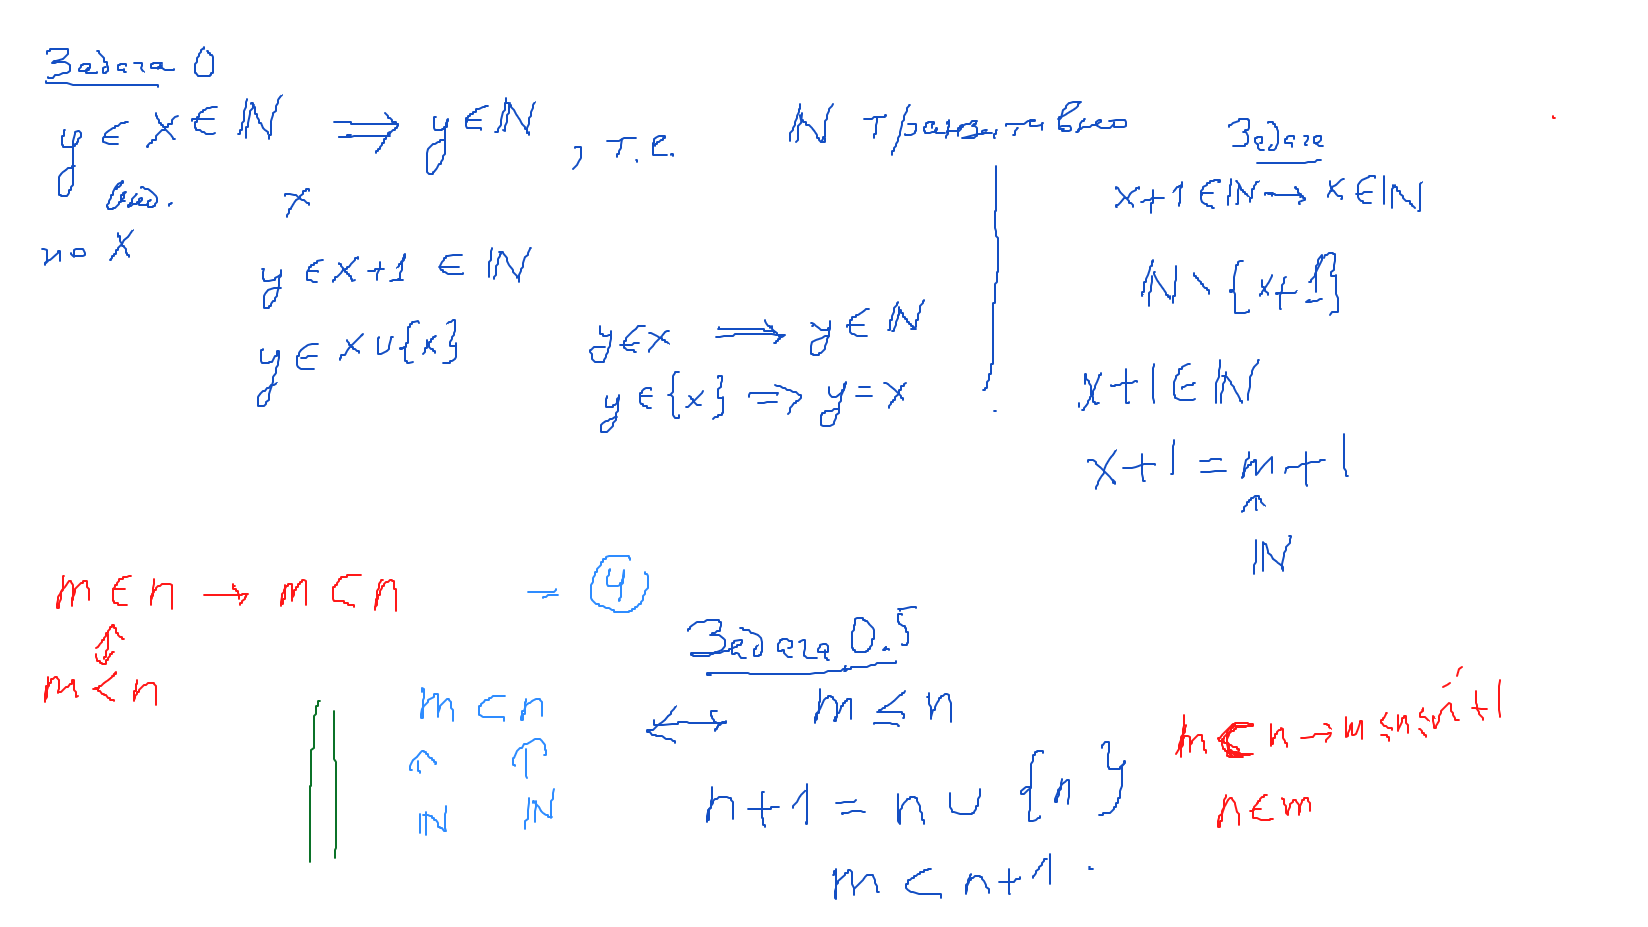 Задача 0
y ∈ x ∈ ℕ ⟹ y ∈ ℕ, т.е. ℕ транзитивно
инд. x
по x
y ∈ x+1 ∈ ℕ
y ∈ x ∪ {x}
y ∈ x ⟹ y ∈ ℕ
y ∈ {x} ⟹ y = x
Задача
x+1 ∈ ℕ → x ∈ ℕ
ℕ \ {x+1}
x+1 ∈ ℕ
x+1 = m+1
↑
ℕ
m ∈ n → m ⊂ n – 4
↕
m < n
Задача 0.5
m ⊂ n ↔ m ≤ n
↑ ↑
ℕ ℕ
n+1 = n ∪ {n}
m ⊂ n+1.
m ⊂ n → m ≤ n ≤ n+1
n ∈ m